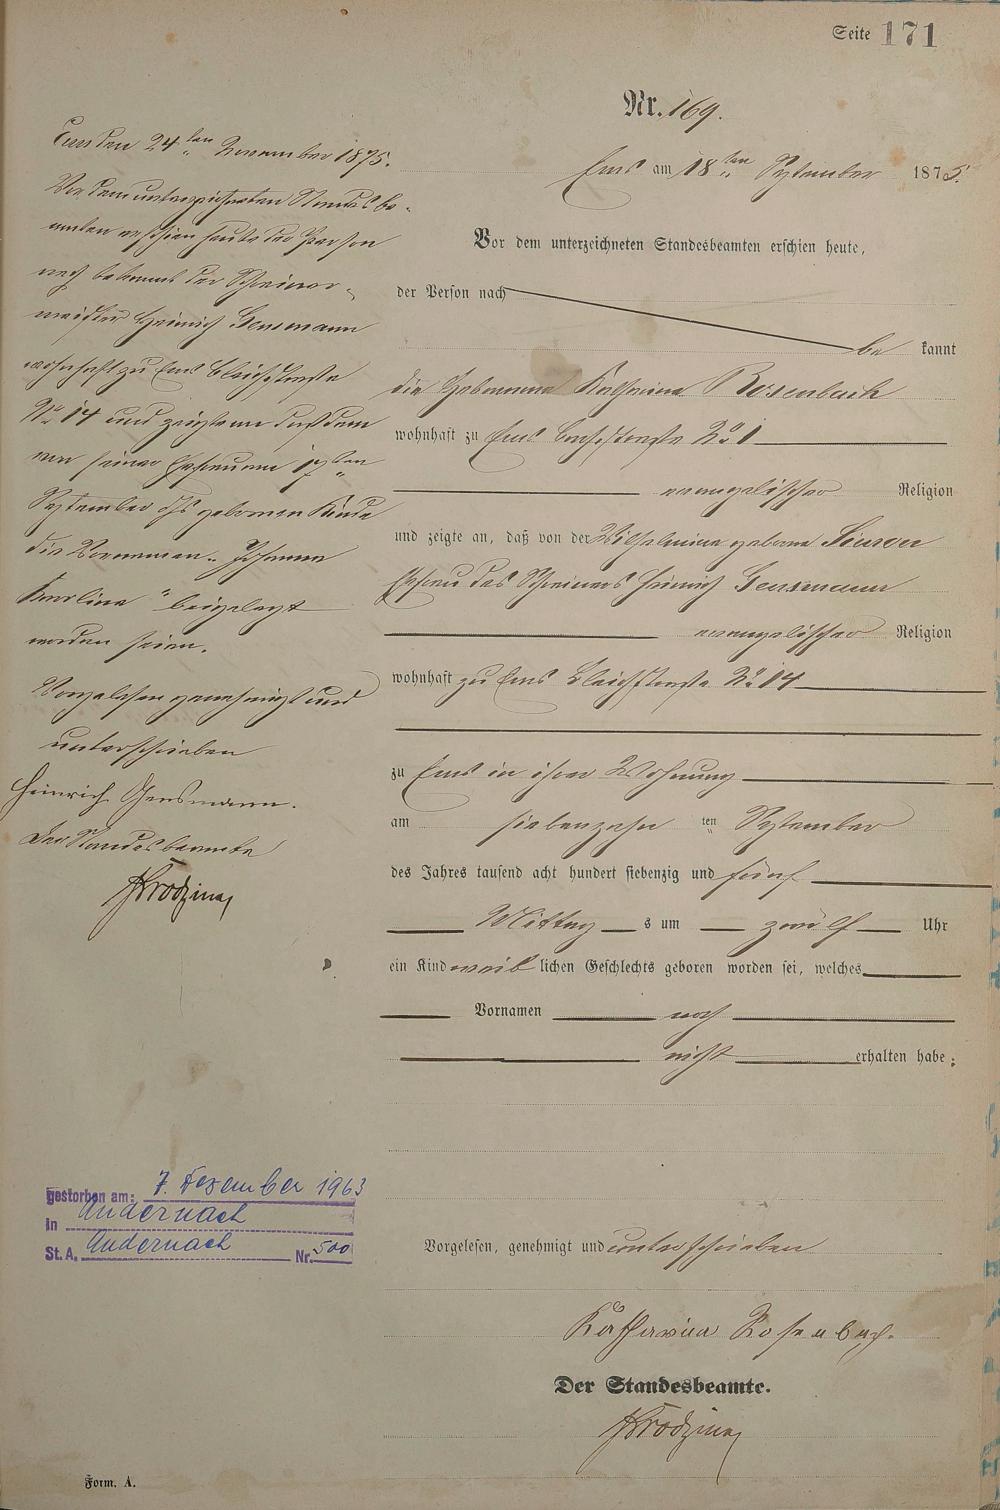 Seite 171
Nr. 169.
Ems am 18ten September 1875.
Vor dem unterzeichneten Standesbeamten erschien heute,
der Person nach
be kannt
die Hebamme Katharina Rosenbach
wohnhaft zu Ems Bachstraße No 1
evangelischer Religion
und zeigte an, daß von der Wilhelmine geborene
Ehefrau des Schreiners Heinrich Gensmann
evangelischer Religion
wohnhaft zu Ems Bleichstraße No 14
zu Ems in ihrer Wohnung
am siebenzehn ten September
des Jahres tausend acht hundert siebenzig und fünf
Mittag s um zwölf Uhr
ein Kind weib lichen Geschlechts geboren worden sei, welches
Vornamen noch
nicht erhalten habe;
Vorgelesen, genehmigt und unterschrieben
Katharina Rosenbach.
Der Standesbeamte.
Ems den 24ten November 1875.
Vor dem unterzeichneten Standesbe-
amten erschien heute der Person
nach bekannt der Schreiner-
meister Heinrich Gensmann
wohnhaft zu Ems Bleichstraße
No 14 und zeigte an daß dem
von seiner Ehefrau am 17ten
September ds geborenen Kinde
die Vornamen „Johanna
Karolina" beigelegt
worden seien.
Vorgelesen genehmigt und
unterschrieben
Heinrich Gensmann.
Der Standesbeamte
gestorben am: 7. Dezember 1963
in Andernach
St. A. Andernach Nr. 500
Form. A.